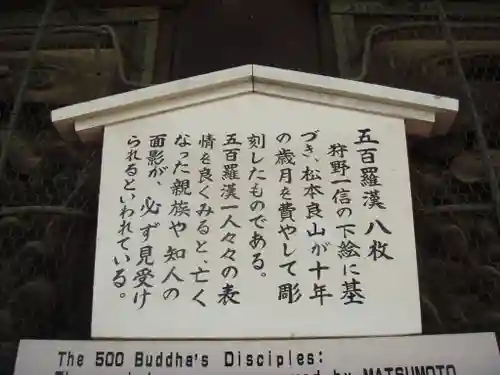 五百羅漢 八枚
狩野一信の下絵に基
づき、松本良山が十年
の歳月を費やして彫
刻したものである。
五百羅漢一人々々の表
情を良くみると、亡く
なった親族や 知人の
面影が、必ず見受け
られるといわれている。
The 500 Buddha's Disciples:
by MATSUMOTO